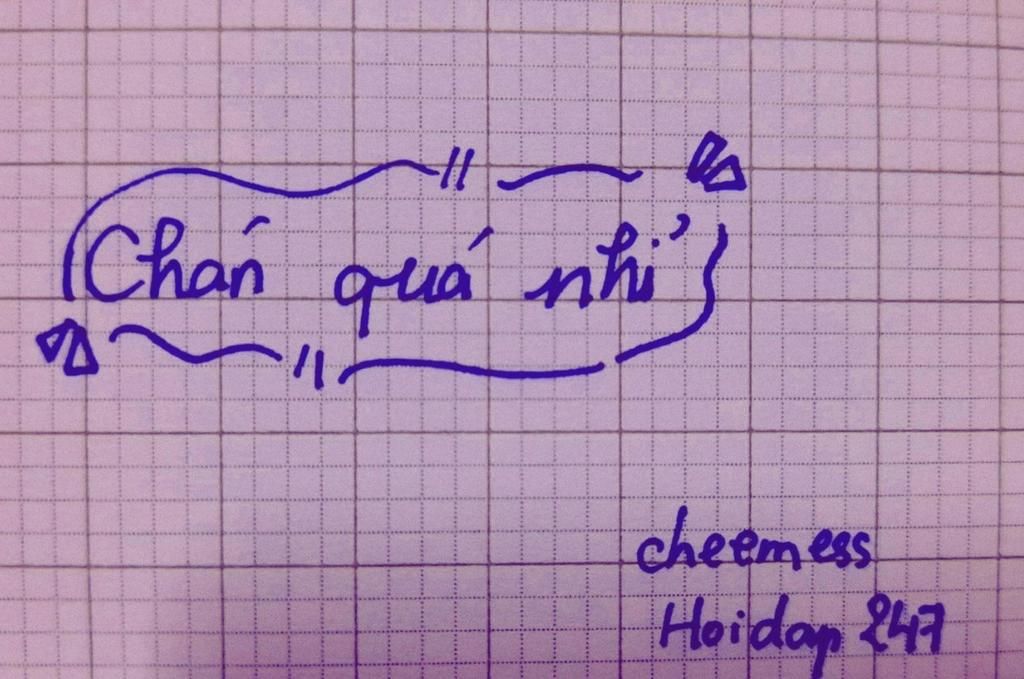 Chán quá nhỉ
cheemess
Hoidap 247